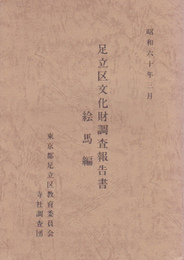 昭和六十年三月
足立区文化財調査報告書
絵馬編
東京都足立区教育委員会
寺社調査団